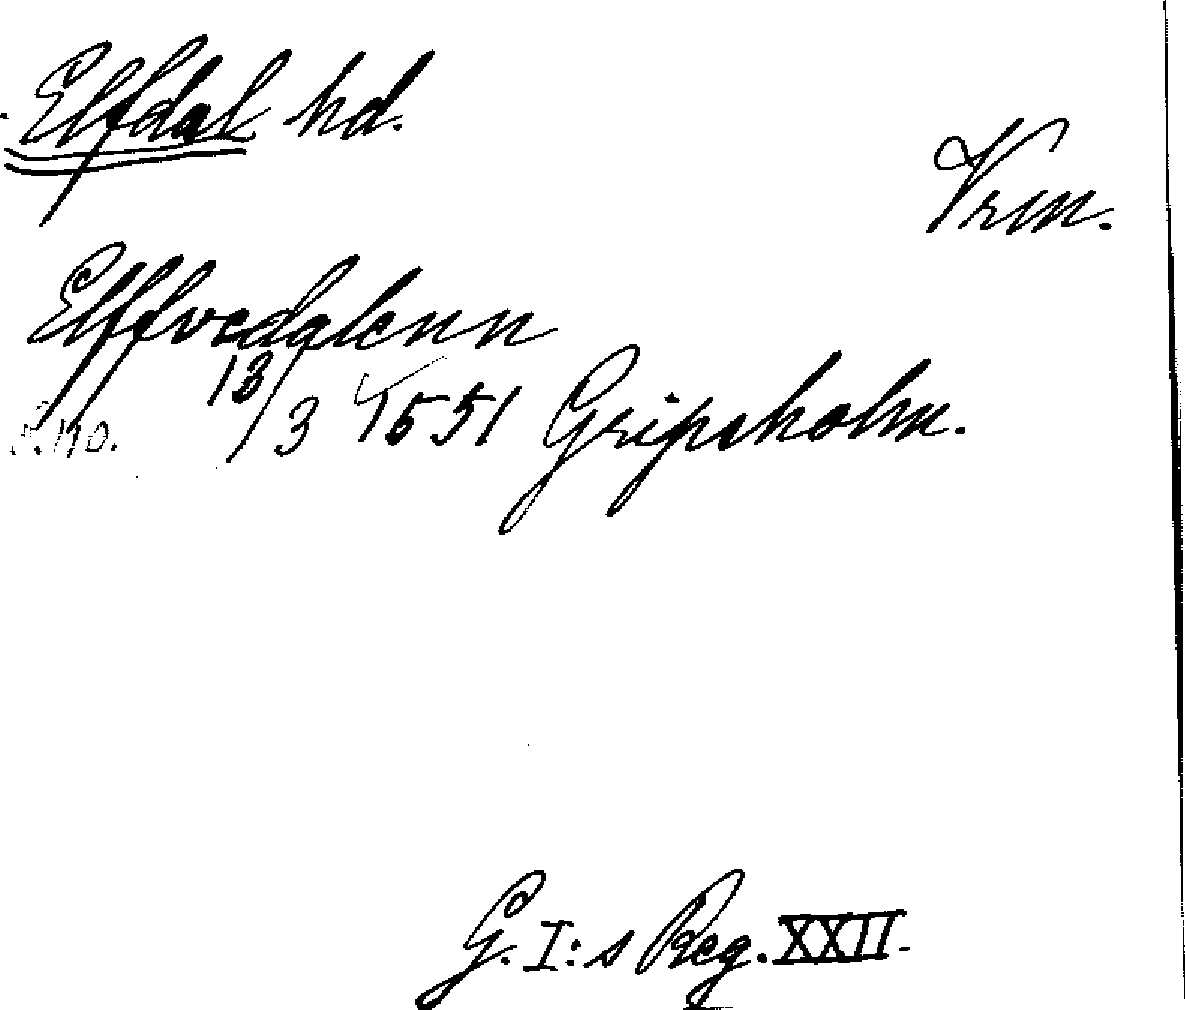 Elfdal hd.
Vrm.
Elffvedalenn
13/3 1551 Gripsholm.
G. I:s Reg. XXII.